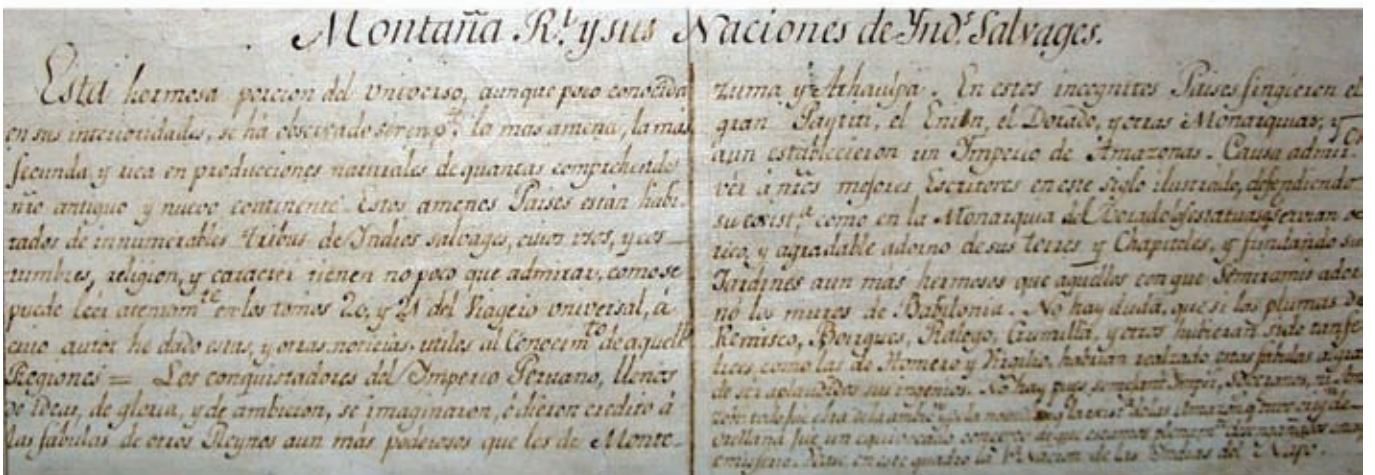 Montaña Rl. y sus Naciones de Ynds. Salvages.
Esta hermosa porcion del Universo, aunque poco conocida
en sus interioridades, se há observado siempre la mas amena, la mas
fecunda, y rica en producciones naturales de quantas comprehende
nrô antiguo y nuevo continente. Estos amenos Paises están habi-
tados de innumerables tribus de Yndios salvages, cuios usos, y cos-
tumbres, religion, y caracter tienen no poco que admirar, como se
puede léer atentamte en los tomos 20, y 21 del Viagero universal, á
cuio autor he dado estas, y otras noticias utiles al Conocimto de aquells
Regiones = Los conquistadores del Ymperio Peruano, llenos
de ideas, de gloria, y de ambicion, se imaginaron, ó dieron credito á
las fabulas de otros Reynos aun más poderosos que los de Monte-
zuma y Athaulpa. En estos incognitos Paises fingieron el
gran Paytiti, el Enim, el Dorado, y otras Monarquias, y
aun establecieron un Ymperio de Amazonas. Causa admir.on
vér á nrôs mejores Escritores en este siglo ilustrado, defendiendo
su exista como en la Monarquia del Dorado estatuas servian de
rico, y agradable adorno de sus torres y Chapiteles, y fundando sus
Jardines aun más hermosos que aquellos con que Semiramis ador-
nó los muros de Babylonia. No hay duda, que si las plumas de
Remisco, Borgues, Rálego, Gumilla, y otros hubieran sido tan fe-
lices, como las de Homero y Virgilio, habrian realzado estas fabulas
de ser aplaudidos sus ingenios. No hay pues semejant. Ymper.
Orellana fue un equivocado concepto de que
emisferio. Vive en este quadro la Nacion de las Yndias del Napo.